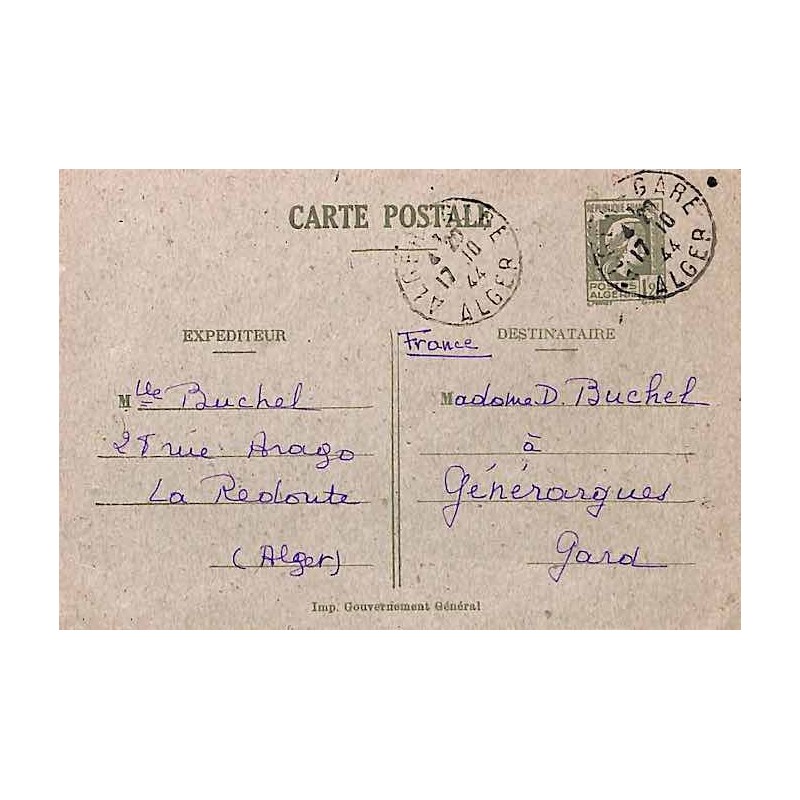 CARTE POSTALE
ALGER GARE
17 10 44
ALGER
GARE
17 10 44
ALGER
POSTES
ALGÉRIE
EXPEDITEUR
Mlle Buchel
28 rue Arago
La Redoute
(Alger)
France
DESTINATAIRE
Madame D. Buchel
à
Générargues
Gard
Imp. Gouvernement Général